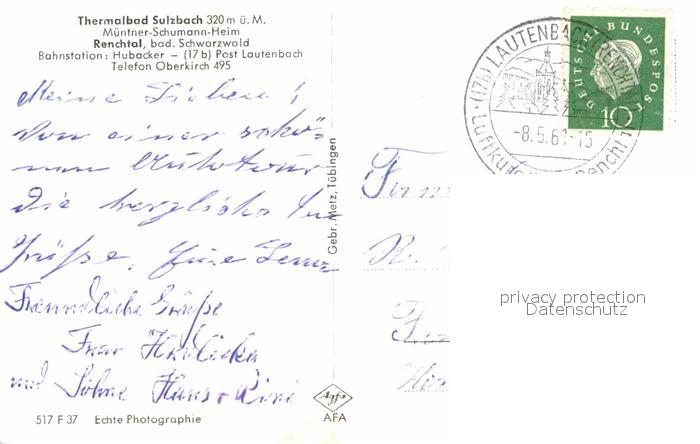 Thermalbad Sulzbach 320 m ü. M.
Müntner-Schumann-Heim
Renchtal, bad. Schwarzwald
Bahnstation: Hubacker – (17 b) Post Lautenbach
Telefon Oberkirch 495
Meine Lieben!
Von einer schö=
nen Autotour
die herzlichsten
Grüße, Eure
Freundliche Grüße
Frau
und Söhne Hans +
517 F 37 Echte Photographie
Gebr. Metz, Tübingen
Agfa
AFA
(17b) LAUTENBACH (RENCHTAL)
-8.5.61-15
Luftkurort
DEUTSCHE BUNDESPOST
10
privacy protection
Datenschutz